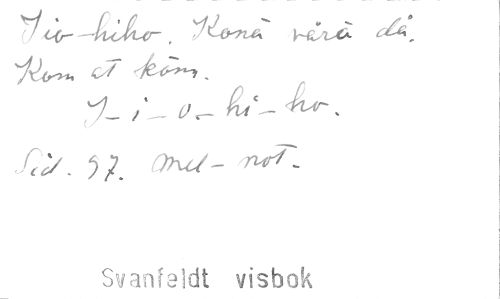 Iio-hiho. Konå vårå då.
Kom at köm.
I-i-o-hi-ho.
Sid. 97. Mel-not.
Svanfeldt visbok